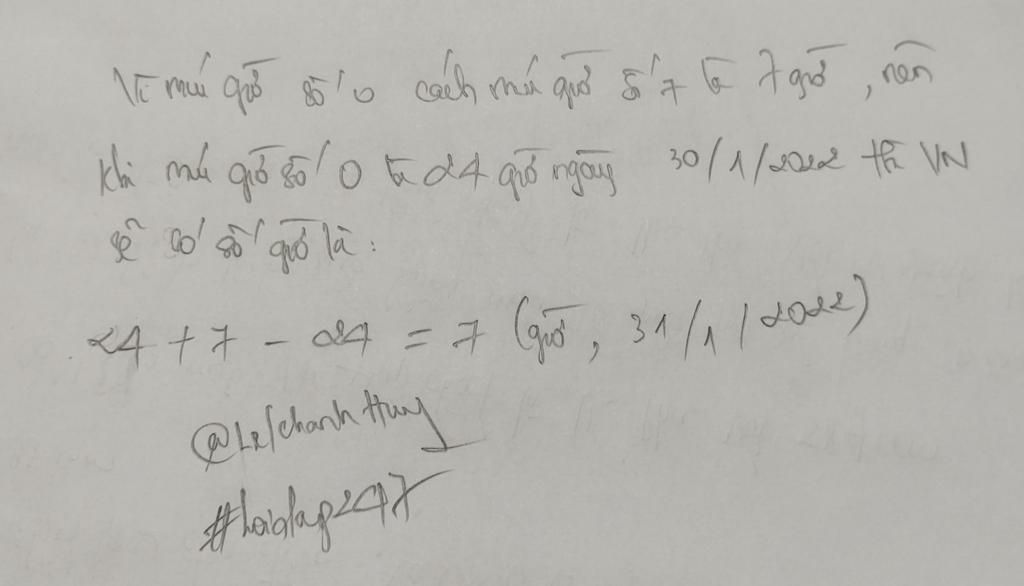 Vì múi giờ số 0 cách múi giờ số 7 là 7 giờ, nên
khi múi giờ số 0 là 24 giờ ngày 30/1/2022 thì VN
sẽ có số giờ là:
24 + 7 - 24 = 7 (giờ, 31/1/2022)
@LeKhanhHuy
#hoidap247